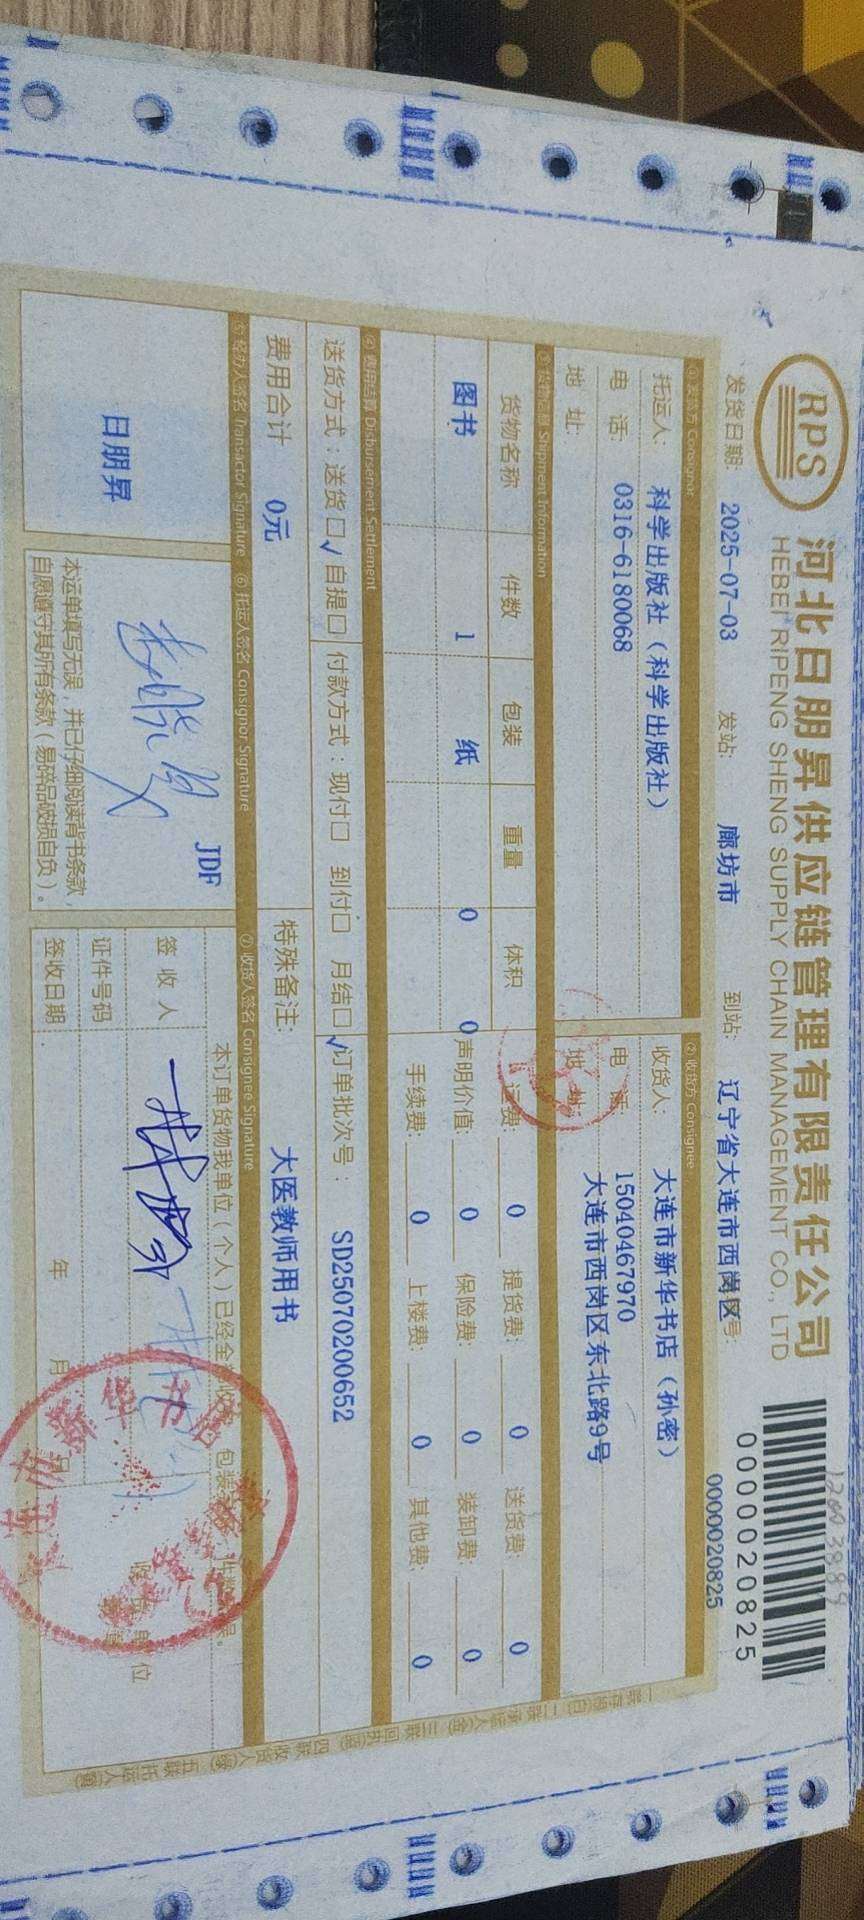 RPS
河北日朋昇供应链管理有限责任公司
HEBEI RIPENG SHENG SUPPLY CHAIN MANAGEMENT CO., LTD
0000020825
发货日期: 2025-07-03 发站: 廊坊市 到站: 辽宁省大连市西岗区 号: 0000020825
① 发货方 Consignor ② 收货方 Consignee
托运人: 科学出版社（科学出版社） 收货人: 大连市新华书店（孙密）
电 话: 0316-6180068 电 话: 15040467970
地 址: 地 址: 大连市西岗区东北路9号
③ 货物信息 Shipment Information
货物名称 件数 包装 重量 体积 运费: 0 提货费: 0 送货费: 0
图书 1 纸 0 0 声明价值: 0 保险费: 0 装卸费: 0
手续费: 0 上楼费: 0 其他费: 0
④ 费用结算 Disbursement Settlement
送货方式: 送货□√ 自提□ 付款方式: 现付□ 到付□ 月结□√ 订单批次号: SD25070200652
费用合计 0元 特殊备注: 大医教师用书
⑤ 经办人签名 Transactor Signature ⑥ 托运人签名 Consignor Signature ⑦ 收货人签名 Consignee Signature
日朋昇
JDF
本运单填写无误，并已仔细阅读背书条款，
自愿遵守其所有条款（易碎品破损自负）。
本订单货物我单位（个人）已经全
签收人
证件号码
签收日期: 年 月 日